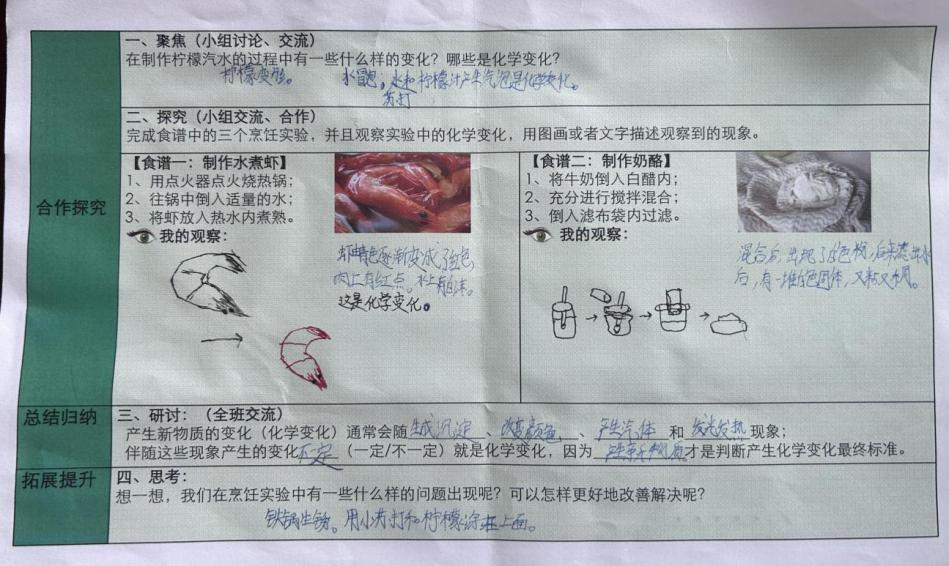 一、聚焦（小组讨论、交流）
在制作柠檬汽水的过程中有一些什么样的变化？哪些是化学变化？
柠檬变酸。 水冒泡；苏打水和柠檬汁产生气泡是化学变化。
二、探究（小组交流、合作）
完成食谱中的三个烹饪实验，并且观察实验中的化学变化，用图画或者文字描述观察到的现象。
合作探究
【食谱一：制作水煮虾】
1、用点火器点火烧热锅；
2、往锅中倒入适量的水；
3、将虾放入热水内煮熟。
我的观察：
虾青色逐渐变成了红色，
肉上有红点。水上有白沫。
这是化学变化。
【食谱二：制作奶酪】
1、将牛奶倒入白醋内；
2、充分进行搅拌混合；
3、倒入滤布袋内过滤。
我的观察：
混合后，出现了白色物，后来滤出水
后，有一堆白色固体，又粘又稠。
总结归纳
三、研讨：（全班交流）
产生新物质的变化（化学变化）通常会随生成沉淀、改变颜色、产生气体 和 发光发热 现象；
伴随这些现象产生的变化不一定（一定/不一定）就是化学变化，因为 产生新物质才是判断产生化学变化最终标准。
拓展提升
四、思考：
想一想，我们在烹饪实验中有一些什么样的问题出现呢？可以怎样更好地改善解决呢？
铁锅生锈。用小苏打和柠檬涂在上面。